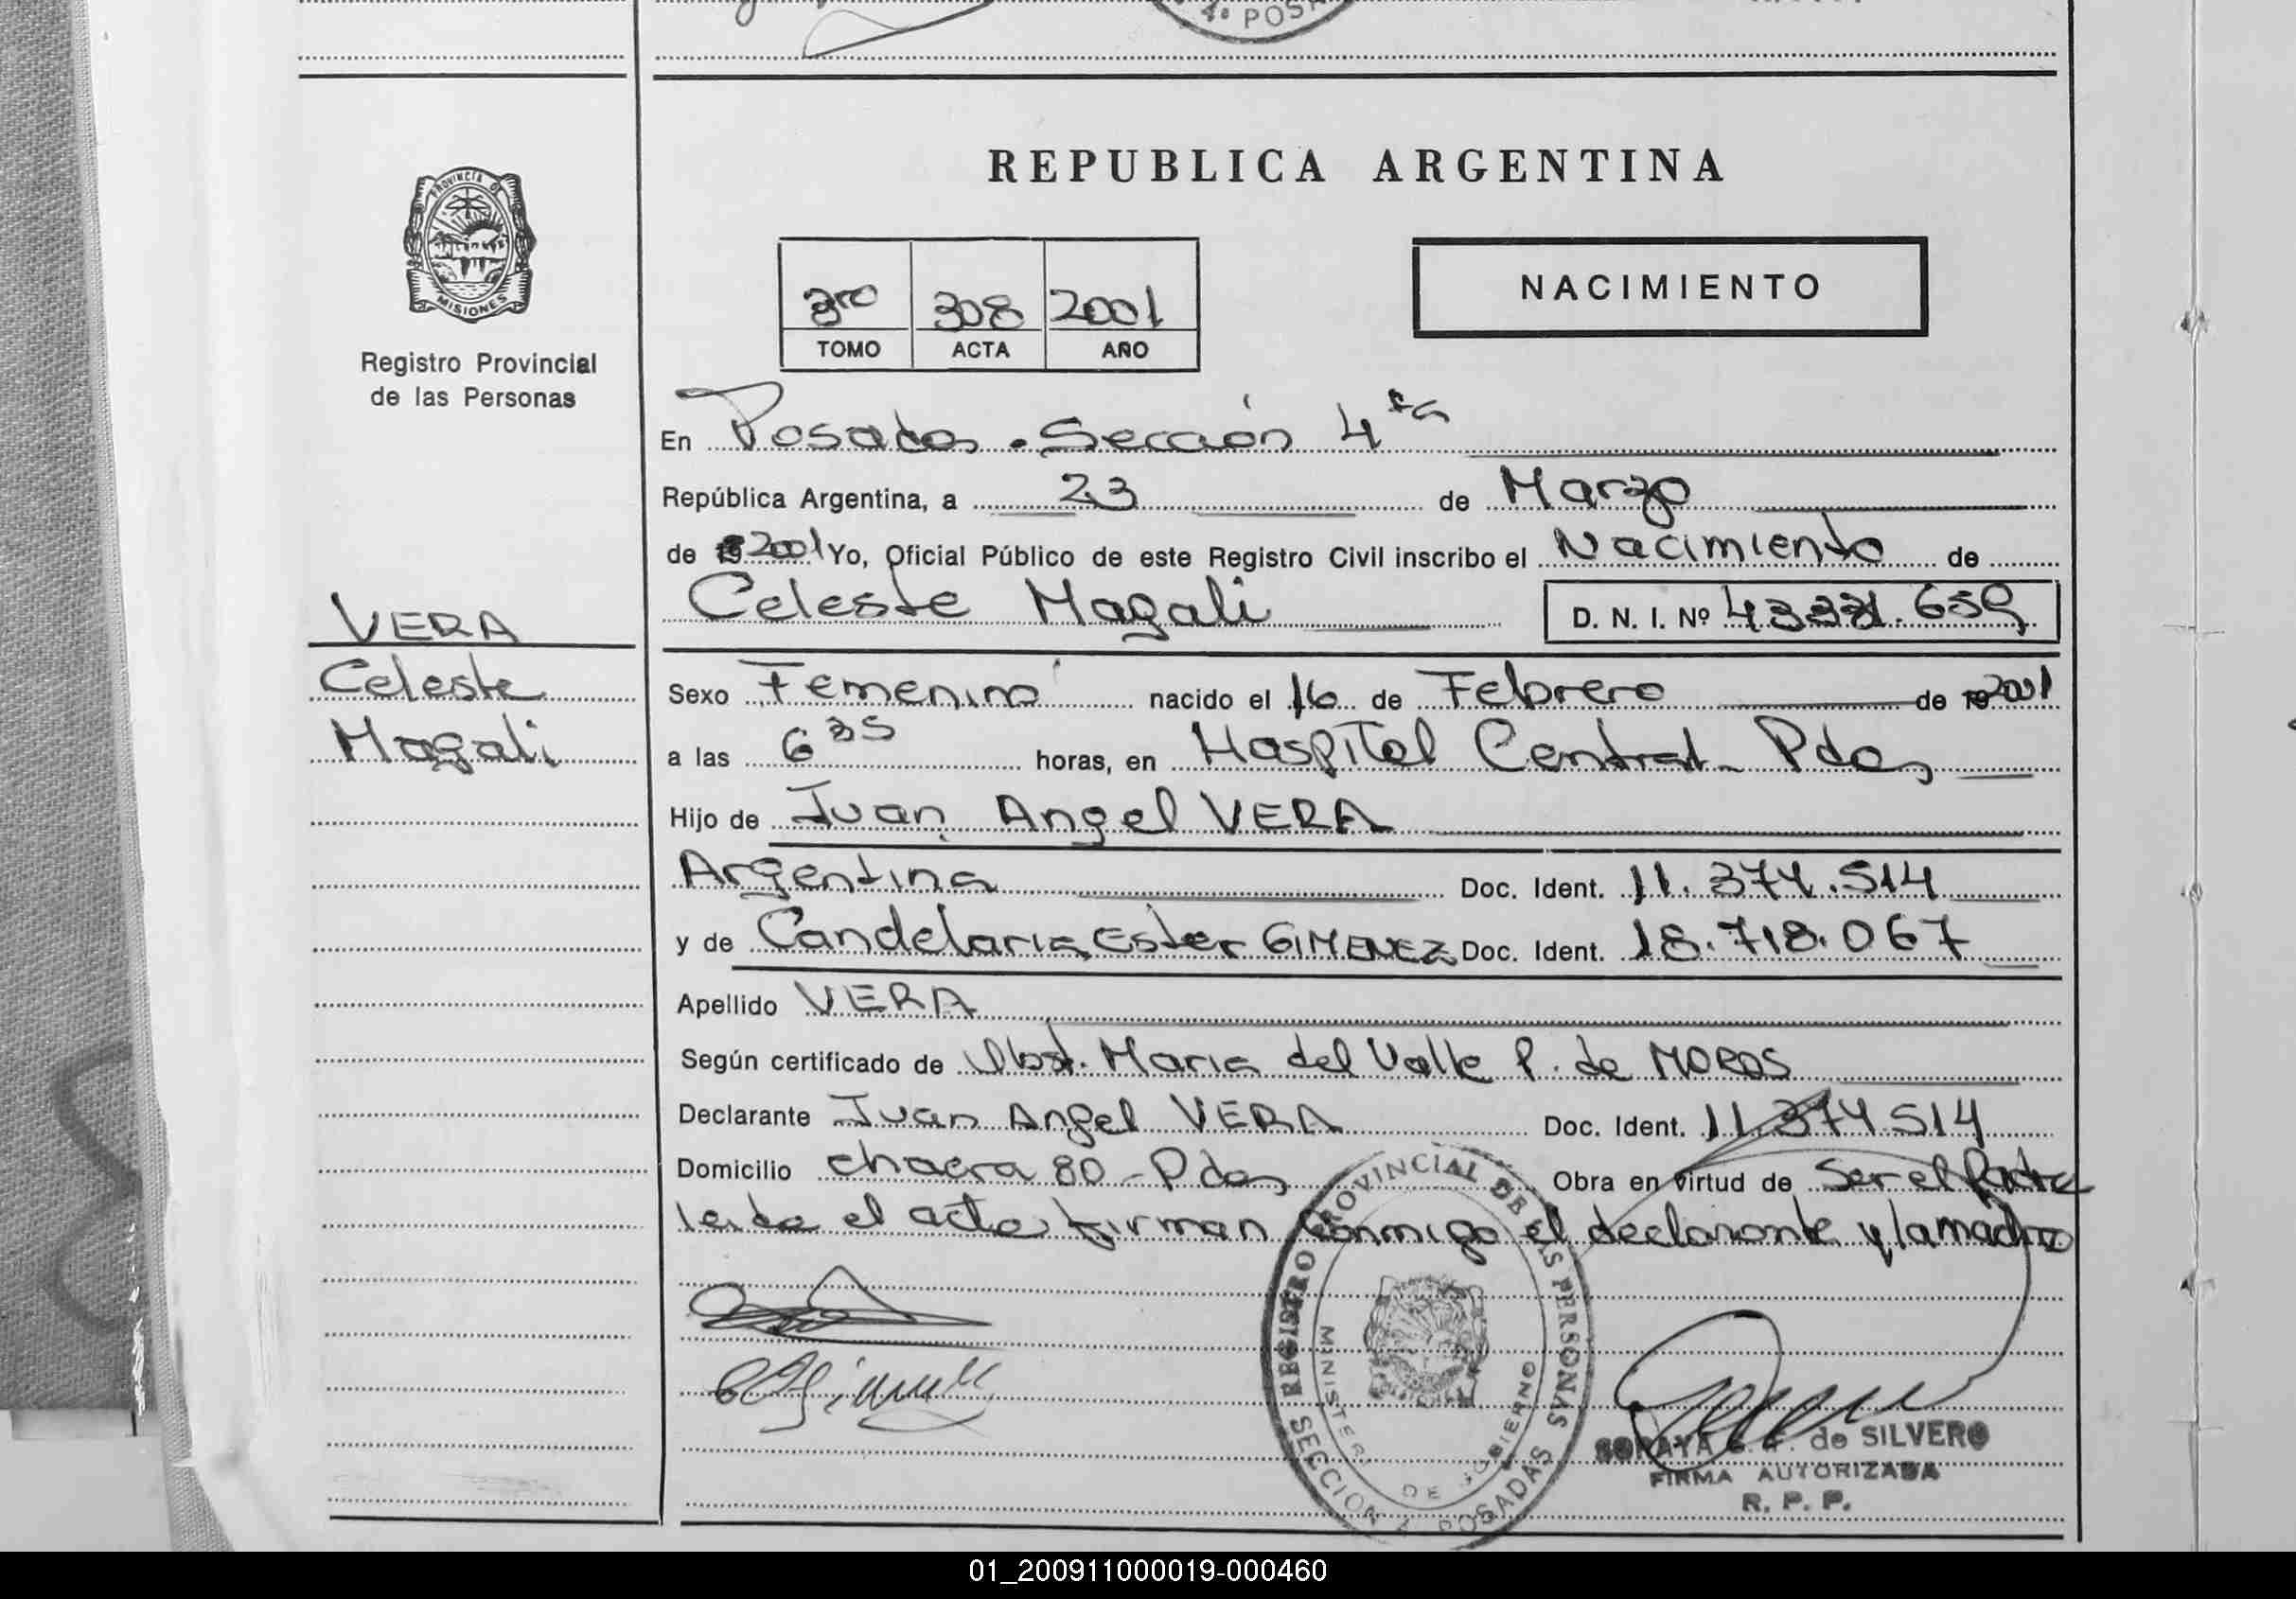 4ª POSA
PROVINCIA DE
MISIONES
Registro Provincial
de las Personas
VERA
Celeste
Magali
REPUBLICA ARGENTINA
3ro 308 2001
TOMO ACTA AÑO
NACIMIENTO
En Posadas - Sección 4ta
República Argentina, a 23 de Marzo
de 19 2001 Yo, Oficial Público de este Registro Civil inscribo el Nacimiento de
Celeste Magali D. N. I. Nº 659
Sexo Femenino nacido el 16 de Febrero de 19 2001
a las 6 35 horas, en Hospital Central - Pdas
Hijo de Juan Angel VERA
Argentina Doc. Ident. 11.374.514
y de Candelaria Ester GIMENEZ Doc. Ident. 18.718.067
Apellido VERA
Según certificado de Obst. Maria del Valle P. de MOROS
Declarante Juan Angel VERA Doc. Ident. 11.374 514
Domicilio chacra 80 - Pdas Obra en virtud de Ser el Padre
leida el acta firman conmigo el declarante y la madre
REGISTRO PROVINCIAL DE LAS PERSONAS
MINISTERIO DE GOBIERNO
SECCION 4ª POSADAS
SORAYA de SILVERO
FIRMA AUTORIZADA
R. P. P.
01_200911000019-000460